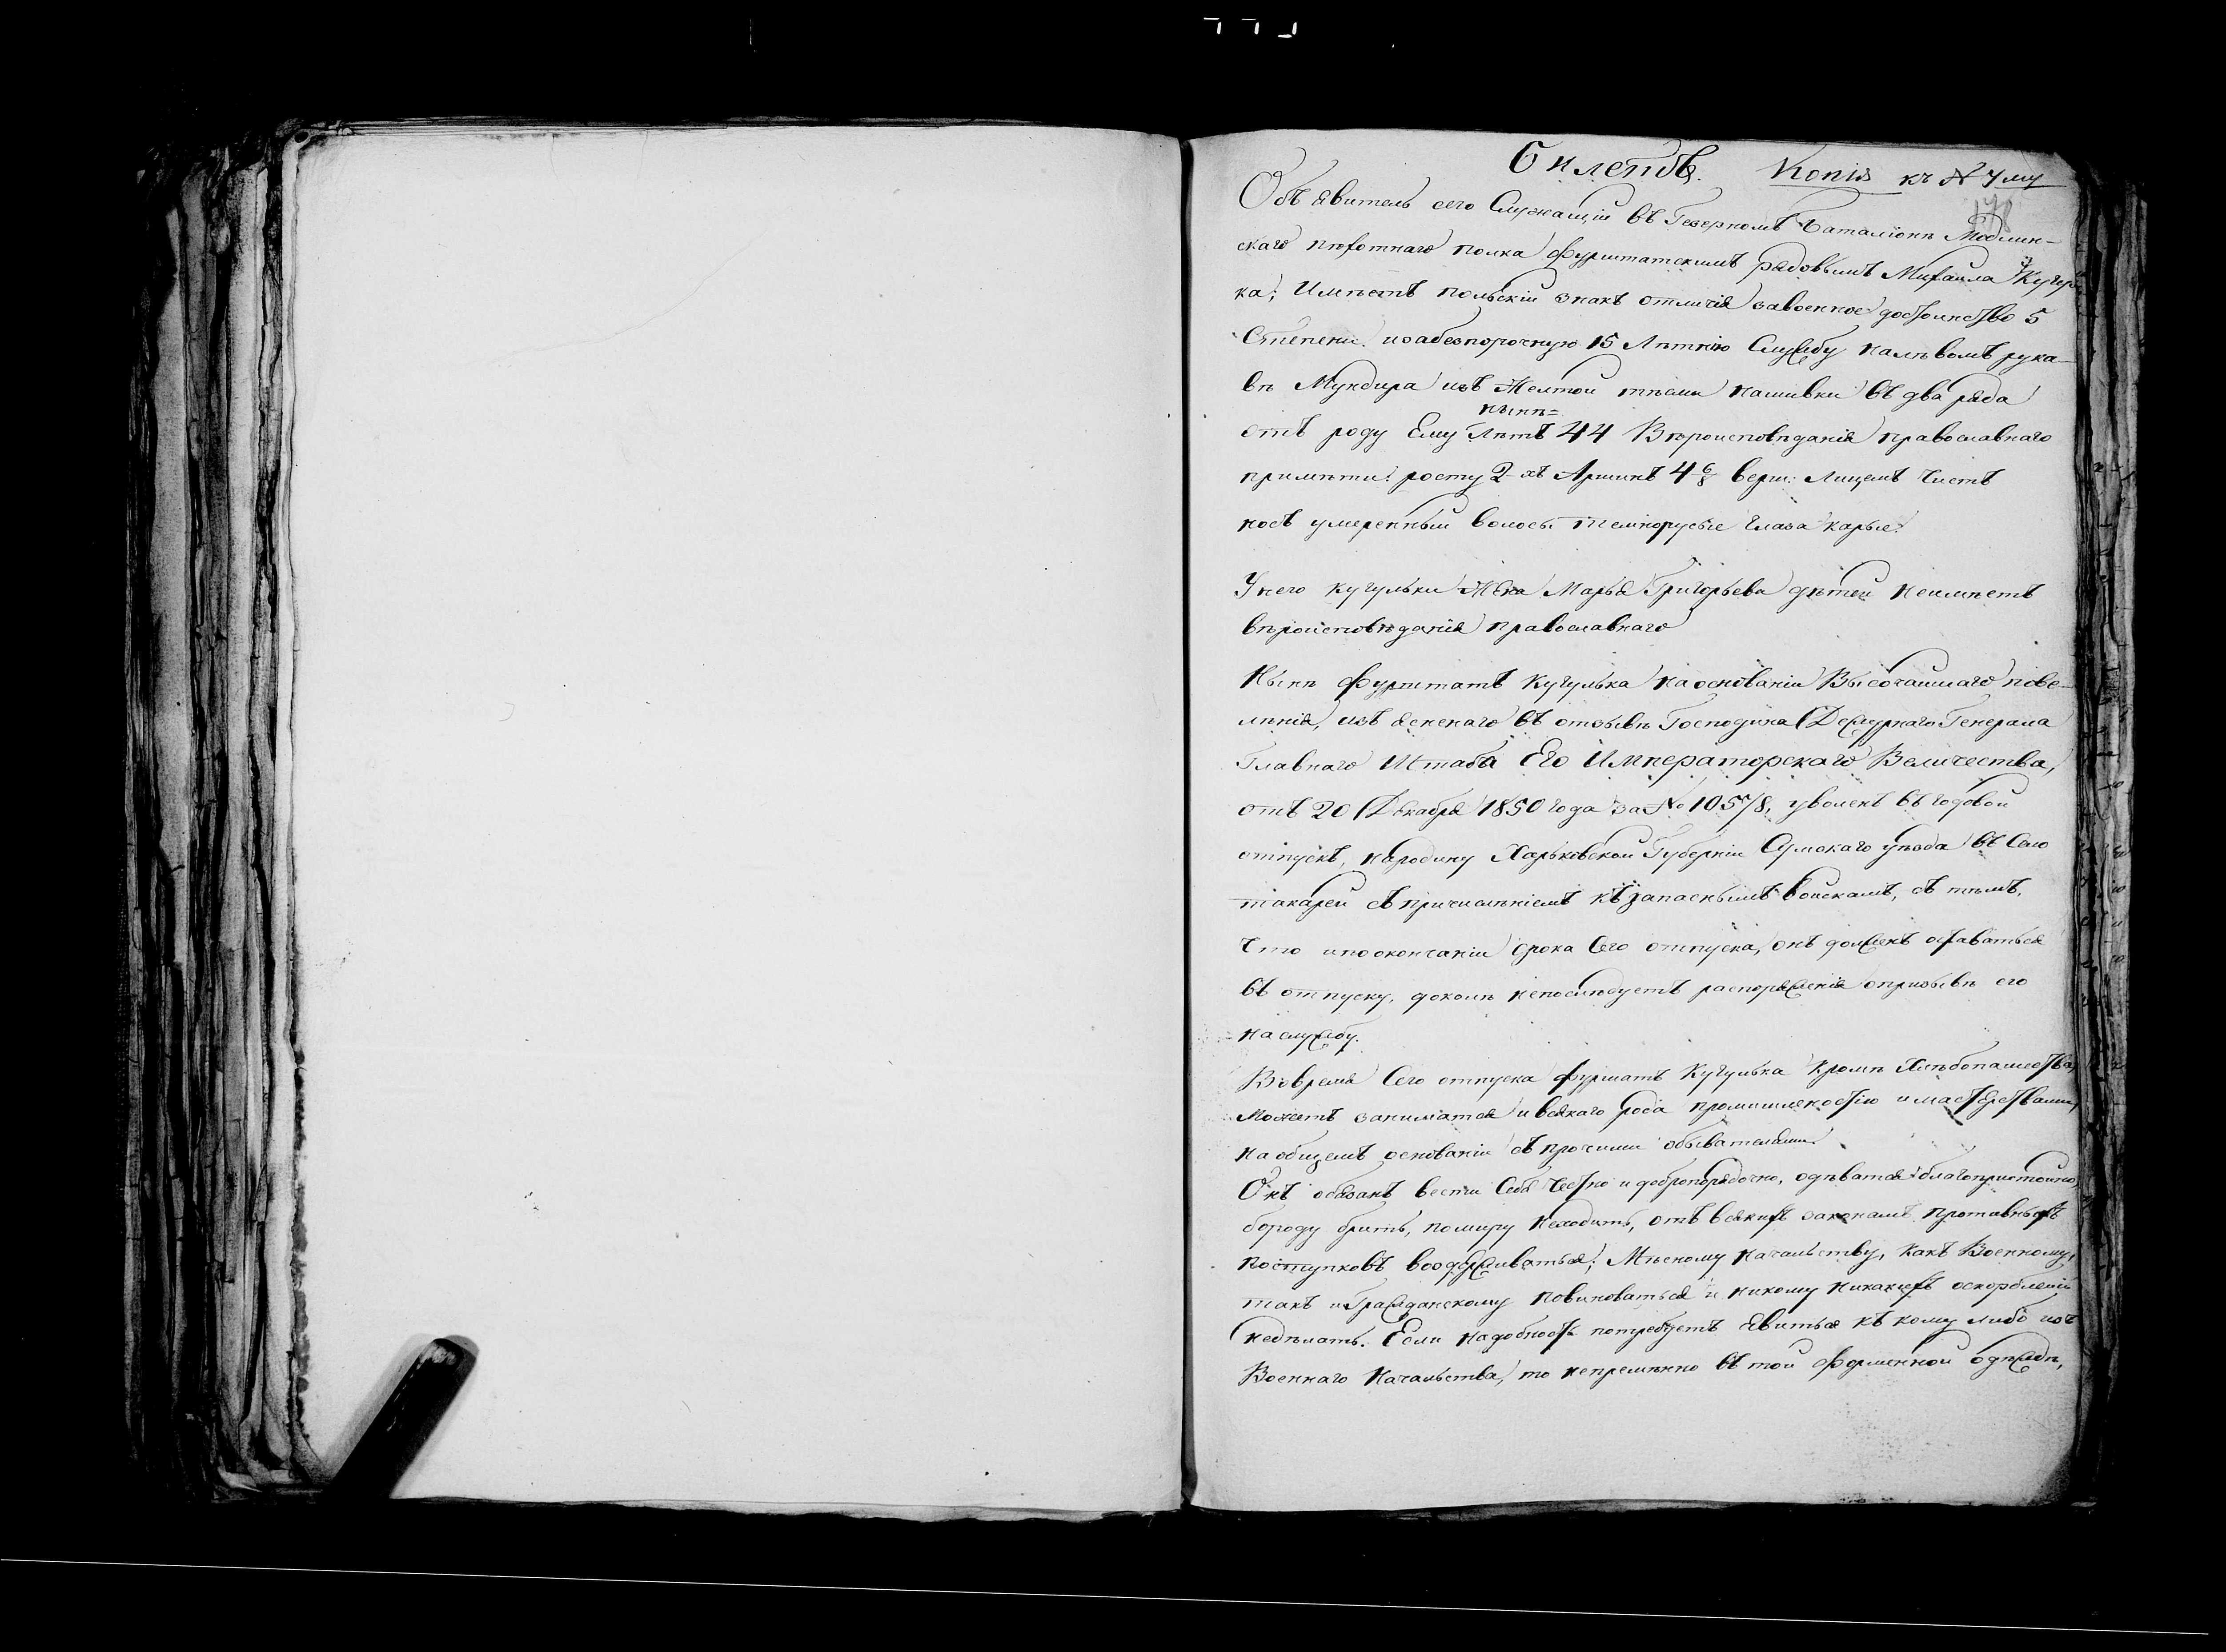 Билетъ. Копія къ № 7му
Объявитель сего Служащій въ Резервномъ баталіонѣ Модлин-
скаго пѣхотнаго полка фурштатскимъ рядовымъ Михаила Кугуль
ка; Имѣетъ польскій знакъ отличія завоенное достоинство 5
Степени. изабезпорочную 15 Лѣтнію Службу налѣвомъ рука-
вѣ Мундира изъ Желтой тѣсми нашивки въ два ряда
нынѣ=
отъ роду Ему Лѣтъ 44 Вѣроисповѣданія православнаго
примѣти: росту 2-хъ Аршинъ 4 6/8 верш: Лицемъ Чистъ
носъ умеренный волосы темнорусые глаза карые.
Унего кугульки Жена Марья Григорьева дѣтей неимѣетъ
вѣроисповѣданія православнаго
Нынѣ фурштатъ Кугулька наоснованіи Высочайшаго пове-
лѣнія, изъясненаго въ отзывѣ Господина Дежурнаго Генерала
Главнаго Штаба Его Императорскаго Величества,
отъ 20 Декабря 1850 года за № 10578, уволенъ въ годовой
отпускъ, народину Харьковской Губерніи Сумскаго уѣзда въ Село
токарей съ причисленіемъ къ запаснымъ войскамъ, съ тѣмъ,
что ипоокончаніи срока Сего отпуска, онъ долженъ оставаться
въ отпуску, доколѣ непослѣдуетъ распоряженія опризывѣ его
наслужбу.
Вовремя Сего отпуска фуршатъ Кугулька Кромѣ Хлѣбопашества,
Можетъ заниматся ивсякаго рода промишленостію имастерствами,
наобщемъ основаніи съ прочими обывателями.
Онъ обязанъ вести Себя Честно и добропорядочно, одѣватся благопристойно,
бороду брить, помиру неходить, отъ всякихъ законамъ противныхъ
поступковъ воздерживаться; Мѣсному Начальству, какъ Военному,
такъ иГражданскому повиноваться и никому никакихъ оскорбленій
недѣлать. Если надобность потребуетъ явиться къ кому либо изъ
Военнаго Начальства, то непремѣнно въ той форменной одеждѣ,